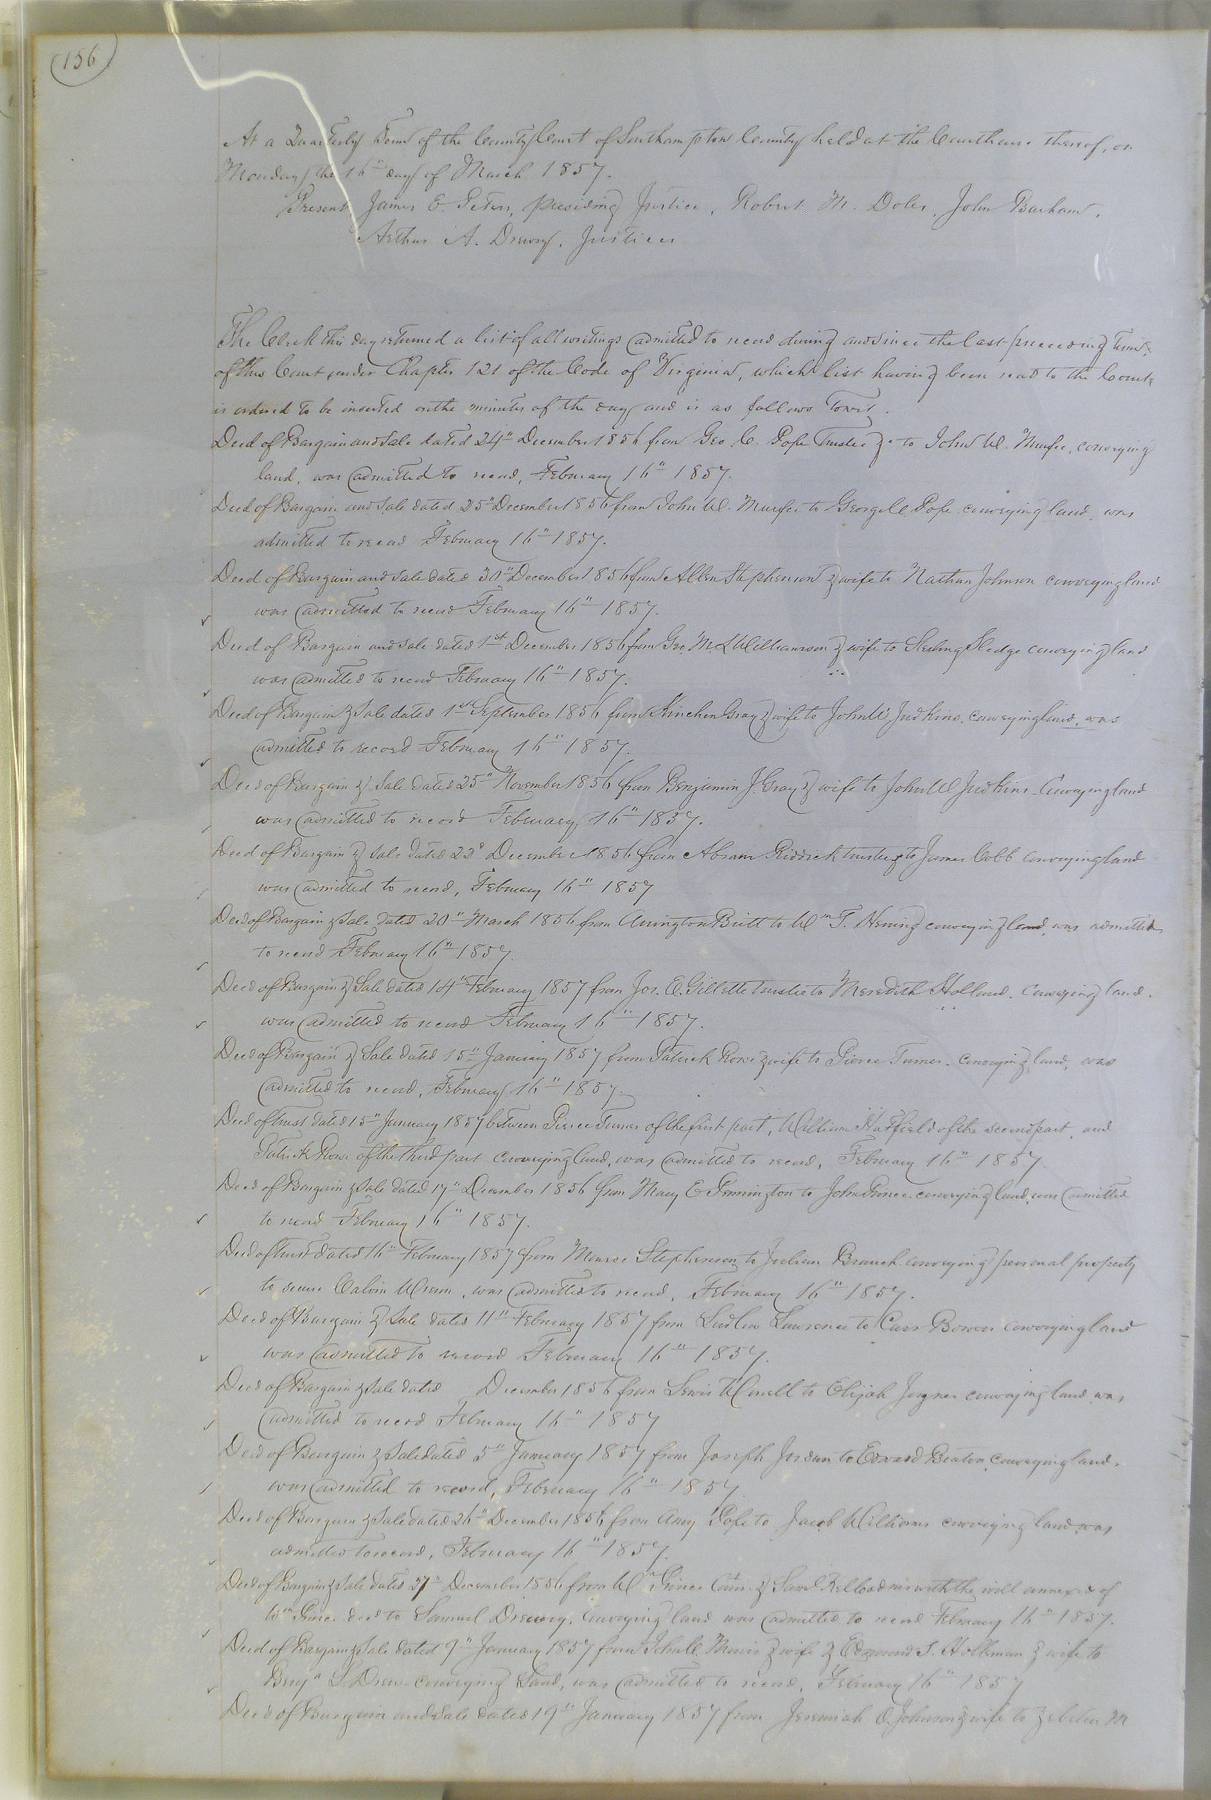 156
At a Quarterly Term of the County Court of Southampton County held at the Courthouse thereof, on
Monday the 16th day of March 1857.
Present James E. Peters, presiding Justice, Robert M. Doles, John Barham,
Arthur A. Drewry, Justices
The Clerk this day returned a list of all writings admitted to record during and since the last preceeding Term
of this Court under Chapter 121 of the Code of Virginia, which list having been read to the Court
is ordered to be inserted on the minutes of the day and is as follows Towit.
Deed of Bargain and Sale dated 24th December 1856 from Geo. C. Pope Trustee &c to John W. Murfee, conveying
land, was admitted to record, February 16th 1857.
Deed of Bargain and Sale dated 25th December 1856 from John W. Murfee to George C Pope conveying land, was
admitted to record February 16th 1857.
Deed of Bargain and Sale dated 30th December 1856 from Allen Stephenson & wife to Nathan Johnson conveying land
was admitted to record February 16th 1857.
Deed of Bargain and Sale dated 1st December 1856 from Geo M. Williamson & wife to Sterling Sledge conveying land
was admitted to record February 16th 1857.
Deed of Bargain & Sale dated 1st September 1856 from Kinchen Gray & wife to John W Judkins, conveying land, was
admitted to record February 16th 1857.
Deed of Bargain & Sale dated 25th November 1856 from Benjamin J. Gray & wife to John W Judkins Conveying land
was admitted to record February 16th 1857.
Deed of Bargain & Sale dated 23d December 1856 from Abram Riddick trustee to James Cobb conveying land
was admitted to record, February 16th 1857
Deed of Bargain & Sale dated 20th March 1856 from Arrington Britt to Wm T. conveying land, was admitted
to record February 16th 1857.
Deed of Bargain & Sale dated 14th February 1857 from Jos. E. Gillette trustee to Meredith Holland. Conveying land.
was admitted to record February 16th 1857.
Deed of Bargain & Sale dated 15th January 1857 from Patrick Rowe & wife to Pierce Turner. conveying land, was
admitted to record, February 16th 1857.
Deed of trust dated 15th January 1857 between Pierce Turner of the first part, William Hatfield of the second part, and
Patrick Rowe of the third part conveying land, was admitted to record, February 16th 1857.
Deed of Bargain & Sale dated 17th December 1856 from Mary E to John Prince conveying land, was admitted
to record February 16th 1857.
Deed of trust dated 16th February 1857 from Monroe Stephenson to Julian Branch conveying personal property
to secure Calvin, was admitted to record, February 16th 1857.
Deed of Bargain & Sale dated 11th February 1857 from Lawrence to Carr Bowers conveying land
was admitted to record February 16th 1857.
Deed of Bargain & Sale dated December 1856 from Lewis Worrell to Elijah Joyner conveying land was
admitted to record February 16th 1857
Deed of Bargain & Sale dated 5th January 1857 from Joseph Jordan to Edward Beaton, conveying land,
was admitted to record, February 16th 1857.
Deed of Bargain & Sale dated 26th December 1856 from Amy Pope to Jacob Williams conveying land, was
admitted to record, February 16th 1857.
Deed of Bargain & Sale dated 27th December 1856 from Wm Prince & Saml Kello adm with the will annexed of
Wm Prince decd to Samuel Drewry, conveying land was admitted to record February 16th 1857.
Deed of Bargain & Sale dated 9th January 1857 from John C. Morris & wife & Edmund T. Holleman & wife to
Benjn L. Drew conveying land, was admitted to record, February 16th 1857
Deed of Bargain and Sale dated 19th January 1857 from Jeremiah O. Johnson & wife to M